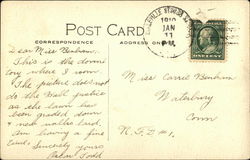 POST CARD
CORRESPONDENCE
ADDRESS
1910
JAN
11
Dear Miss Benham,
This is the dormi
tory where I room
The picture does not
do the Hall justice
as the lawn has
been graded down
& new walks laid.
Am having a fine
time. Sincerely yours
Todd
Miss Carrie Benham
Waterbury
Conn
R.F.D. #1.